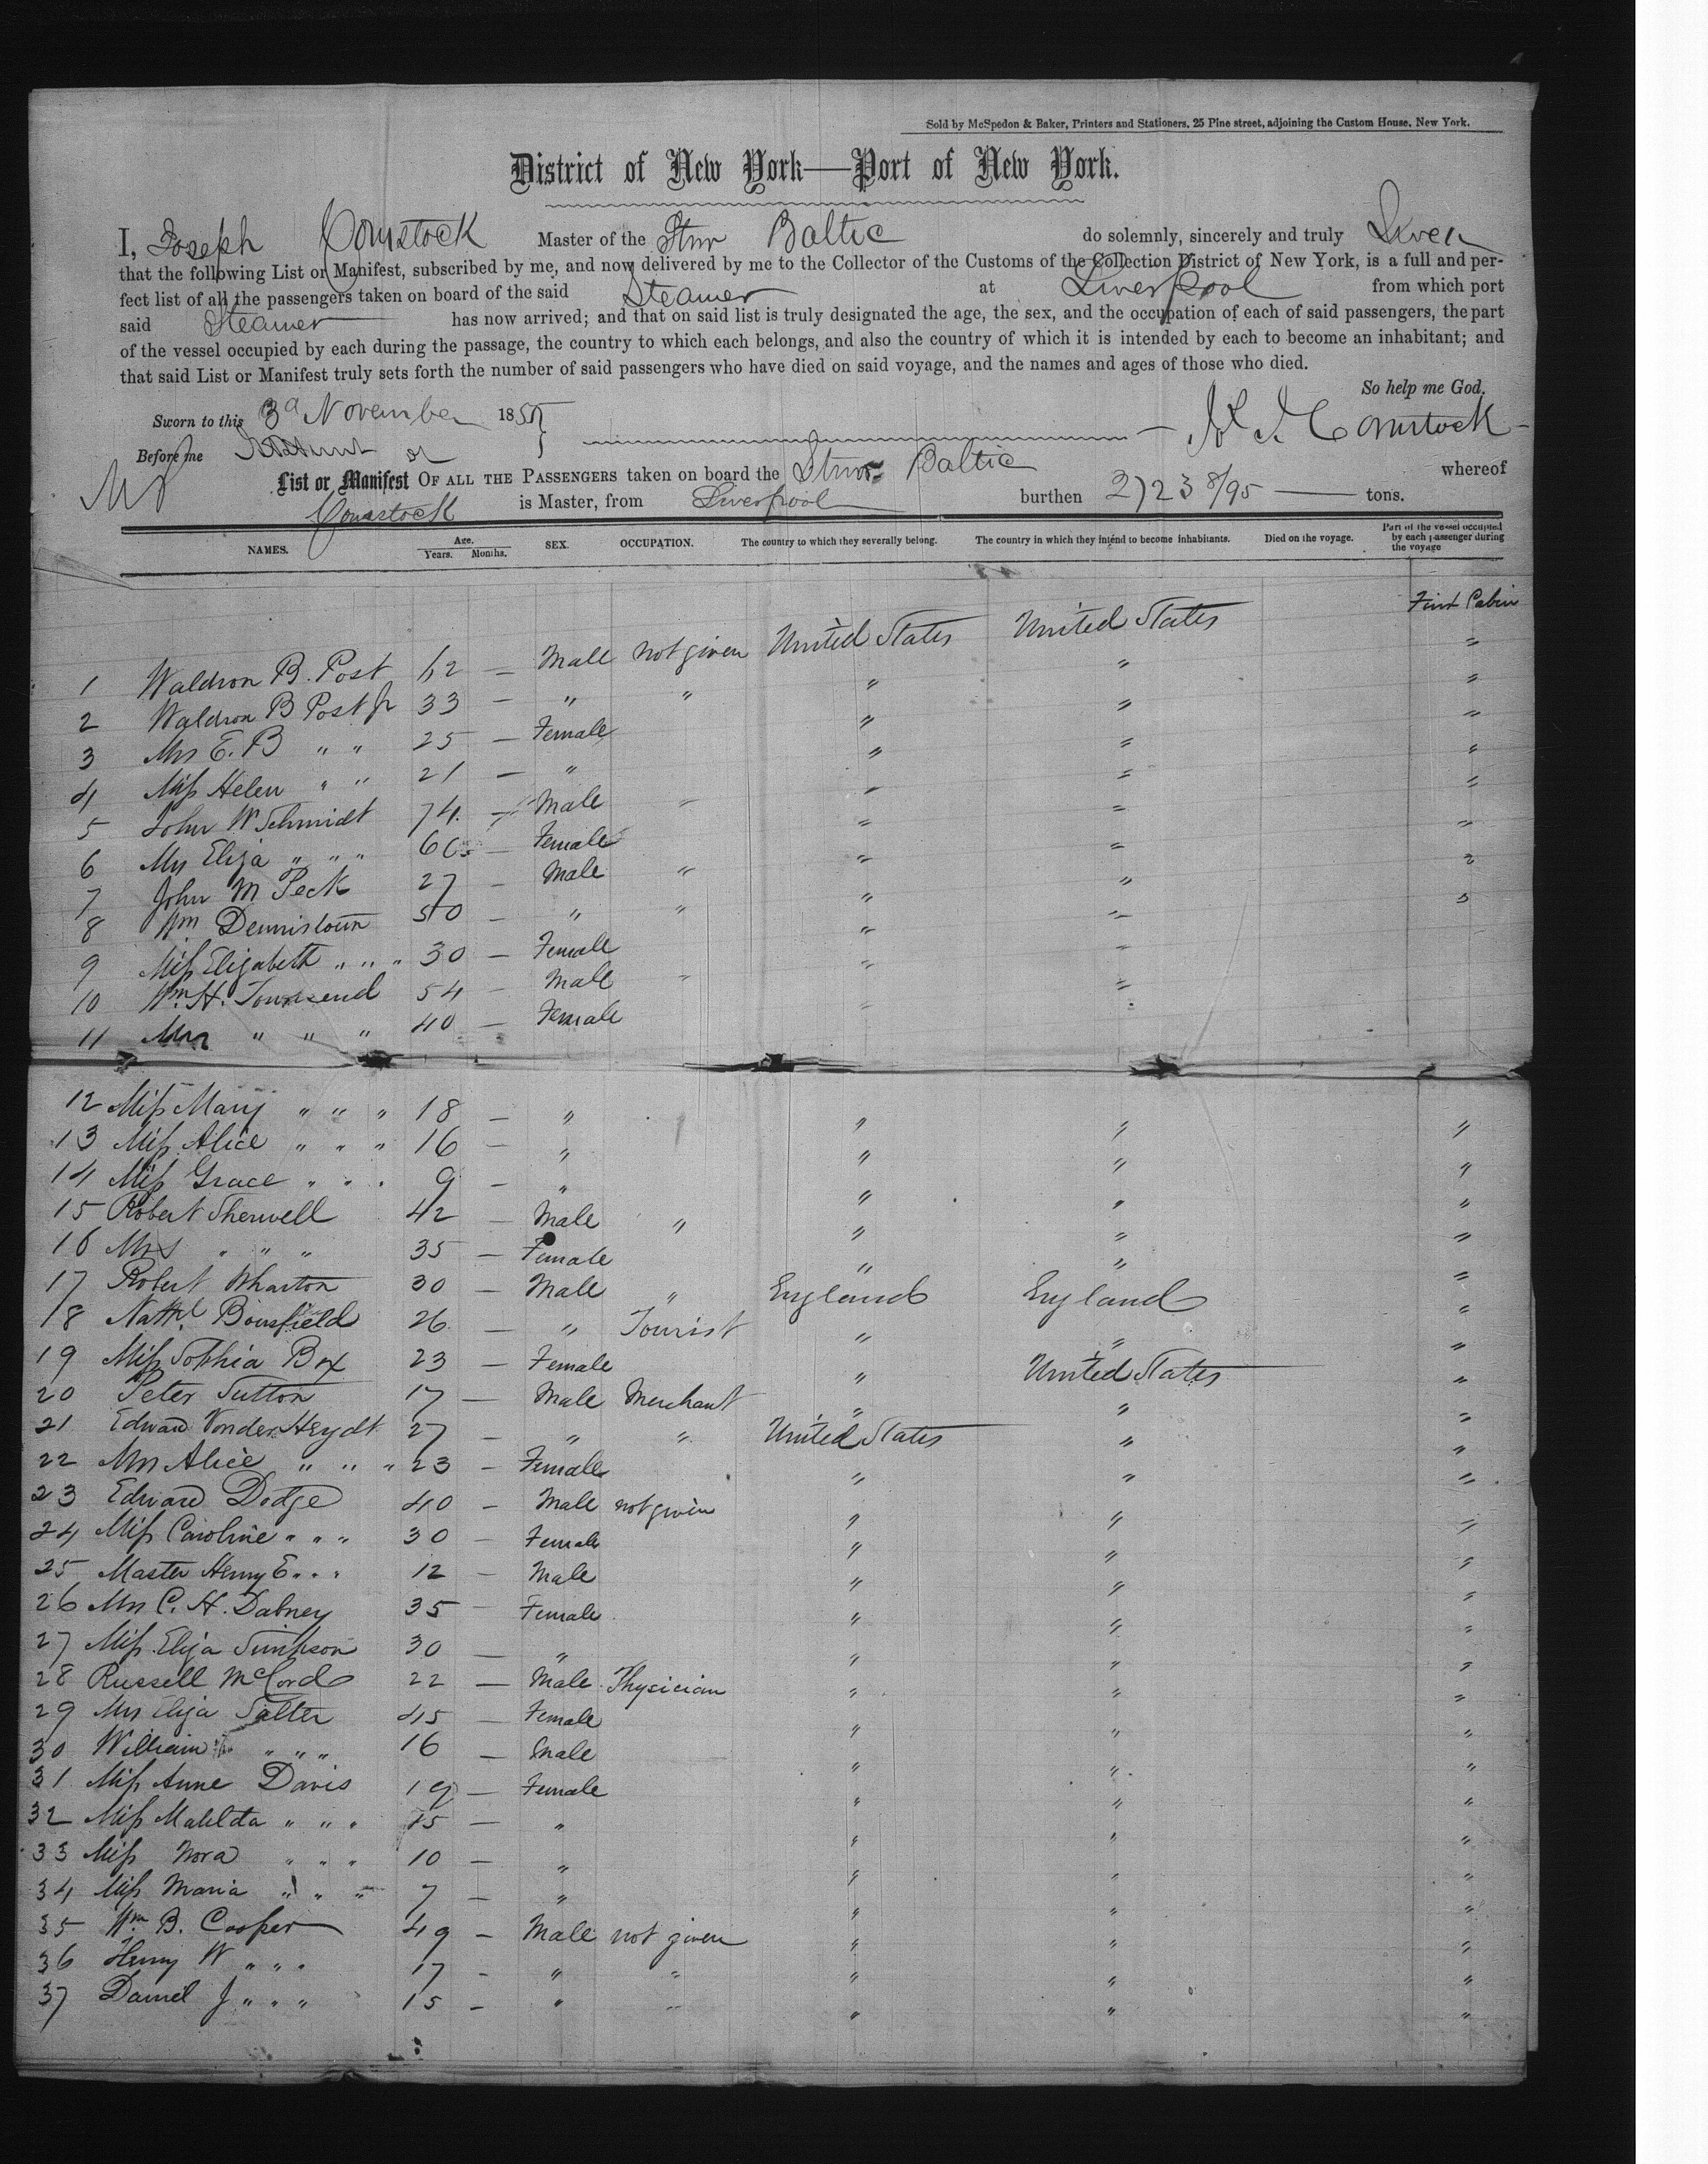 Sold by McSpedon & Baker, Printers and Stationers, 25 Pine street, adjoining the Custom House, New York.
District of New York—Port of New York.
I, Joseph Comstock Master of the Stmr Baltic do solemnly, sincerely and truly Swear
that the following List or Manifest, subscribed by me, and now delivered by me to the Collector of the Customs of the Collection District of New York, is a full and per-
fect list of all the passengers taken on board of the said Steamer at Liverpool from which port
said Steamer has now arrived; and that on said list is truly designated the age, the sex, and the occupation of each of said passengers, the part
of the vessel occupied by each during the passage, the country to which each belongs, and also the country of which it is intended by each to become an inhabitant; and
that said List or Manifest truly sets forth the number of said passengers who have died on said voyage, and the names and ages of those who died.
So help me God.
Sworn to this 3d November 185
Comstock
Before me
List or Manifest OF ALL THE PASSENGERS taken on board the Stmr Baltic whereof
Comstock is Master, from Liverpool burthen 2723 8/95 tons.
NAMES. Age. Years. Months. SEX. OCCUPATION. The country to which they severally belong. The country in which they intend to become inhabitants. Died on the voyage. Part of the vessel occupied by each passenger during the voyage
First Cabin
1 Waldron B. Post 62 — Male not given United States United States "
2 Waldron B Post Jr 33 — " " " " "
3 Mrs E. B " " 25 — Female " " "
4 Miss Helen " " 21 — " " " "
5 John W Schmidt 74 — Male " " " "
6 Mrs Eliza " " " 60 — Female " " "
7 John M Peck 27 — Male " " " "
8 Wm Dennistoun 50 — " " " " "
9 Miss Elizabeth " " " 30 — Female " "
10 Wm. H. Townsend 54 — Male " " "
11 Mrs " " " 40 — Female " "
12 Miss Mary " " " 18 — " " " "
13 Miss Alice " " " 16 — " " " "
14 Miss Grace " " " 9 — " " " "
15 Robert Sherwell 42 — Male " " " "
16 Mrs " " " 35 — Female " " "
17 Robert Wharton 30 — Male " England England "
18 Nathl. Bousfield 26 — " Tourist " " "
19 Miss Sophia Box 23 — Female " United States "
20 Peter Sutton 17 — Male Merchant " " "
21 Edward Vonder Heydt 27 — " " United States " "
22 Mrs Alice " " " 23 — Female " " "
23 Edward Dodge 40 — Male not given " " "
24 Miss Caroline " " " 30 — Female " " "
25 Master Henry E " " " 12 — Male " " "
26 Mrs C. H. Dabney 35 — Female " " "
27 Miss Eliza Simpson 30 — " " " "
28 Russell McCord 22 — Male Physician " " "
29 Mrs Eliza Salter 45 — Female " " "
30 William " " " 16 — Male " " "
31 Miss Anne Davis 19 — Female " " "
32 Miss Matilda " " " 15 — " " " "
33 Miss Nora " " " 10 — " " " "
34 Miss Maria " " " 7 — " " " "
35 Wm. B. Cooper 49 — Male not given " " "
36 Henry W " " " 17 — " " " " "
37 Daniel J " " " 15 — " " " " "